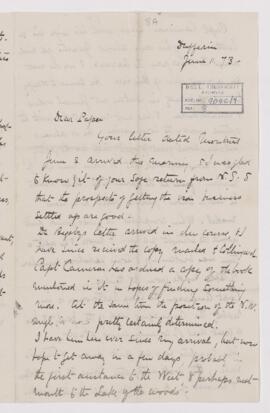 8A
Dufferin
June 11. 73.
Dear Papa
Your letter dated Montreal
June 3 arrived this morning & I was glad
to know by it of your safe return from N.S. &
that the prospects of getting the iron business
settled up are good.
Dr Bigsby's letter arrived in due course, & I
have since received the copy
Capt Cameron has ordered a copy of the book
mentioned in it in hopes of finding something
more. the same time the position of the N.W.
pretty certainly determined.
I have been here ever since my arrival, but now
hope to get away in a few days
the first instance to the West & perhaps next
month to the Lake of the Woods.